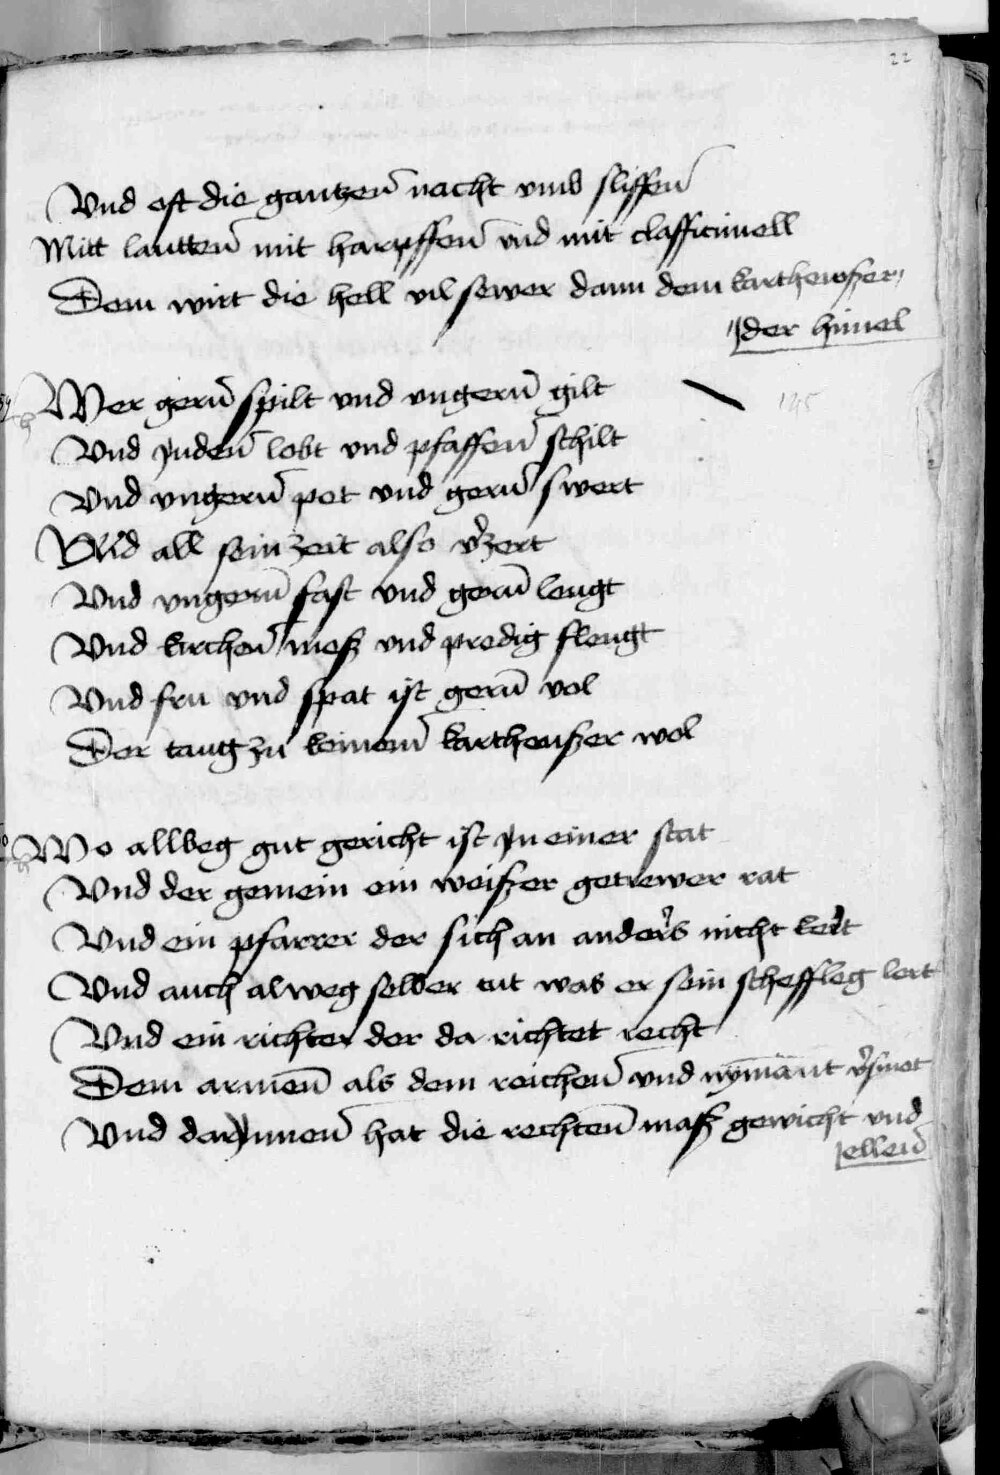 22
Vnd oft die gantzen̄ nacht vmb sliffen̄
Mitt lautten̄ mit harpffen̄ vnd mit clafficimell
Dem wirt die hell vil sewer dann dem karthewszer
der himel
Wer gern̄ spilt vnd vngern̄ gilt
145
Vnd Juden̄ lobt vnd pfaffen̄ schilt
Vnd vngern̄ pet vnd gern̄ swert
Vnd all sein zeit also v̄zert
Vnd vngern̄ fast vnd gern̄ leugt
Vnd kirchen̄ mesz vnd predig fleugt
Vnd fru vnd spat ist gern̄ vol
Der taug zu keinem̄ kartheuszer wol
Wo allbeg gut gericht ist Jn einer stat
Vnd der gemein ein weiszer getrewer rat
Vnd ein pfarrer der sich an anders nicht kert
Vnd auch alweg selber tut was er sein scheffleg lert
Vnd ein richter der da richtet recht
Dem armen̄ als dem reichen̄ vnd nymant v̄smet
Vnd darJnnen̄ hat die rechten̄ masz gewicht vnd
ellen̄